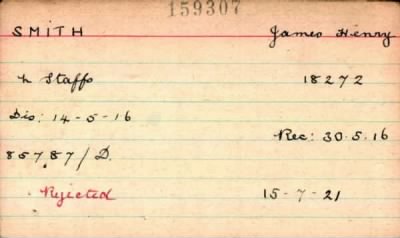 159307
SMITH James Henry
N Staffs 18272
Dis: 14-5-16
Rec: 30.5.16
85787/D.
Rejected 15-7-21